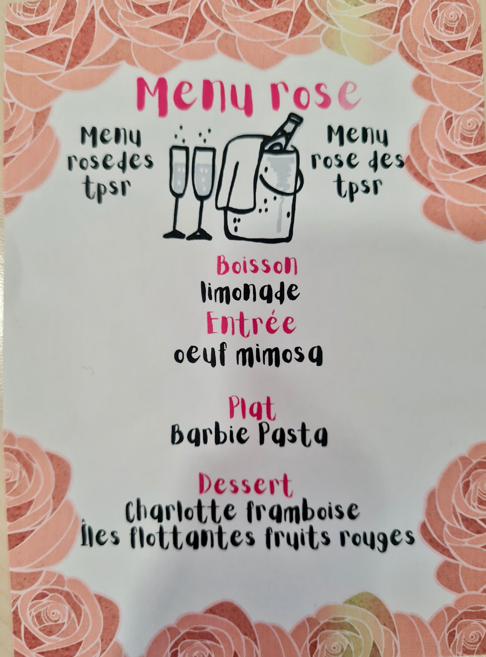 Menu rose
Menu
rosedes
tpsr
Menu
rose des
tpsr
Boisson
limonade
Entrée
oeuf mimosa
Plat
Barbie Pasta
Dessert
Charlotte framboise
Îles flottantes fruits rouges